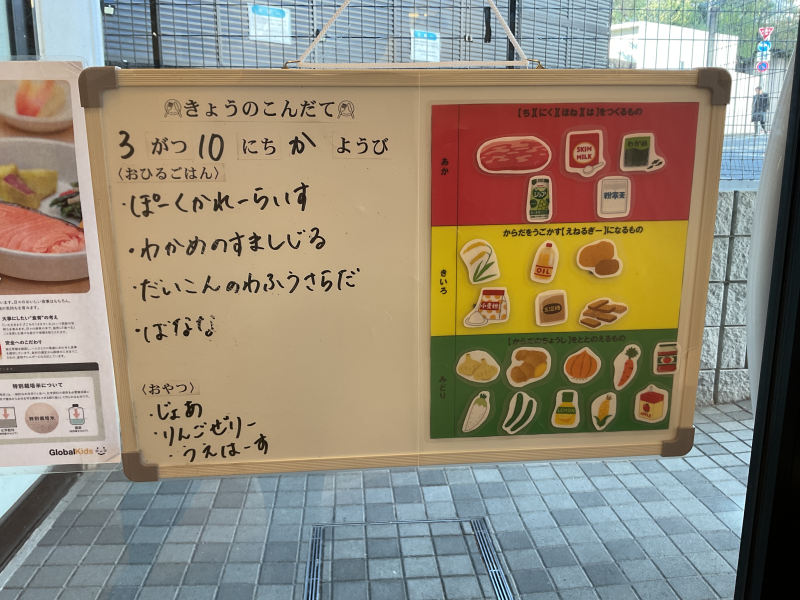 きょうのこんだて
3 がつ 10 にち か ようび
〈おひるごはん〉
・ぽーくかれーらいす
・わかめのすましじる
・だいこんのわふうさらだ
・ばなな
〈おやつ〉
・じょあ
・りんごぜりー
・うえはーす
【ち】【にく】【ほね】【は】をつくるもの
あか
SKIM MILK
わかめ
粉寒天
からだをうごかす【えねるぎー】になるもの
きいろ
OIL
小麦粉
【からだのちょうし】をととのえるもの
みどり
大事にしたい"食育"の考え
安全へのこだわり
特別栽培米について
特別栽培米
GlobalKids